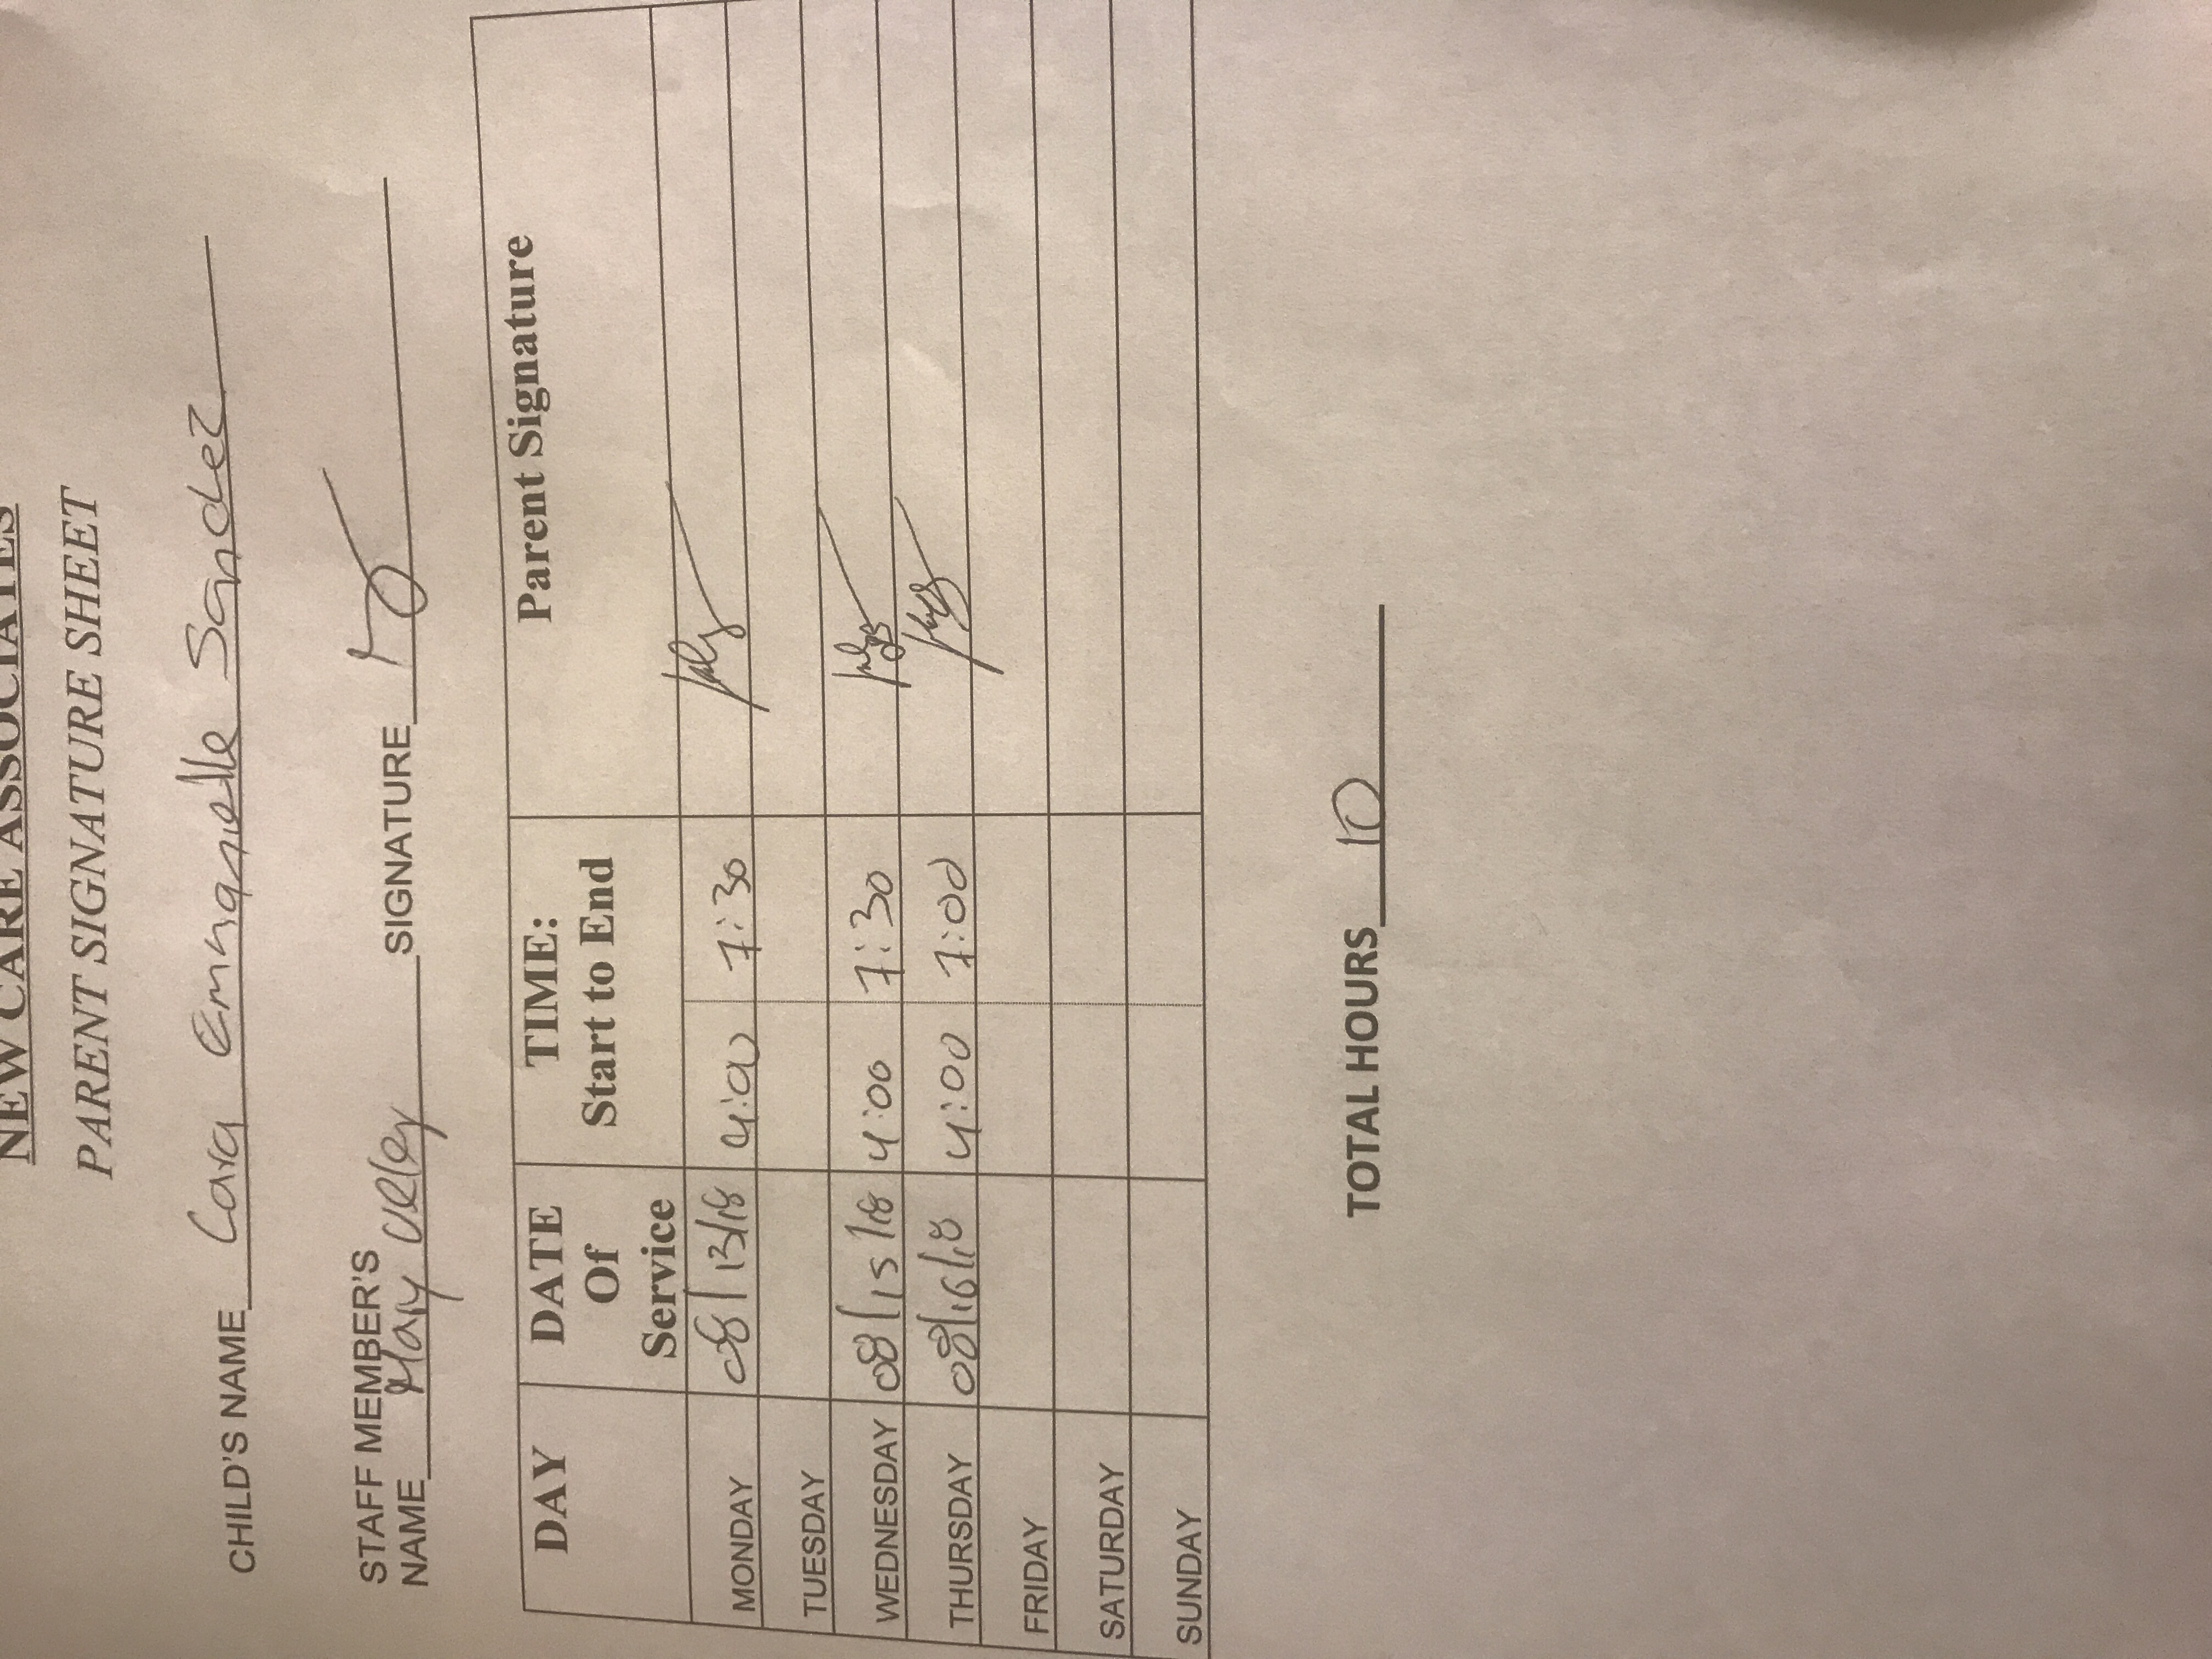 NEW CARE ASSOCIATES
PARENT SIGNATURE SHEET
CHILD'S NAME Cara Emmanielle Sandez
STAFF MEMBER'S
NAME Mary SIGNATURE
DAY DATE Of Service TIME: Start to End Parent Signature
MONDAY 08/13/18 4:00 7:30
TUESDAY
WEDNESDAY 08/15/18 4:00 7:30
THURSDAY 08/16/18 4:00 7:00
FRIDAY
SATURDAY
SUNDAY
TOTAL HOURS 10